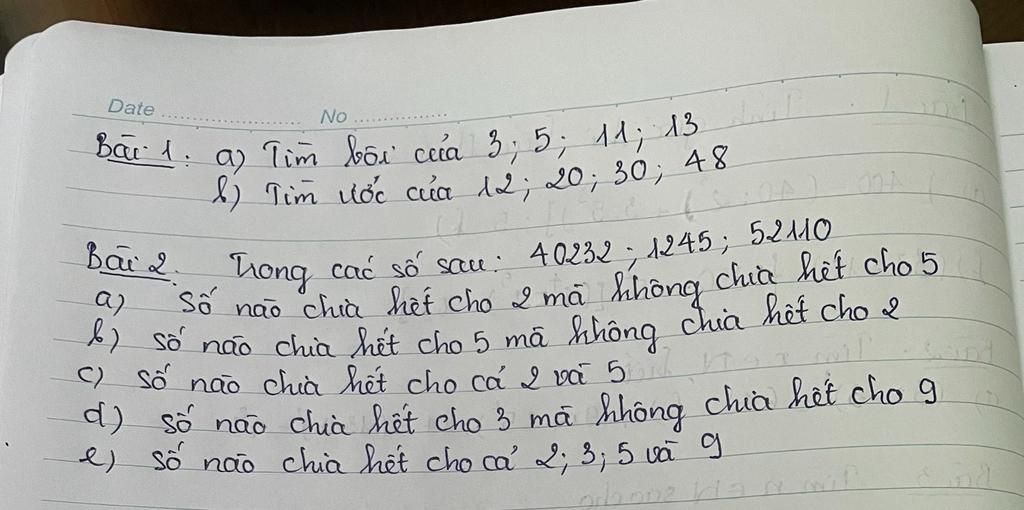 Date ........................ No ................
Bài 1. a) Tìm bội của 3; 5; 11; 13
b) Tìm ước của 12; 20; 30; 48
Bài 2. Trong các số sau: 40232; 1245; 52110
a) Số nào chia hết cho 2 mà không chia hết cho 5
b) Số nào chia hết cho 5 mà không chia hết cho 2
c) Số nào chia hết cho cả 2 và 5
d) Số nào chia hết cho 3 mà không chia hết cho 9
e) Số nào chia hết cho cả 2; 3; 5 và 9